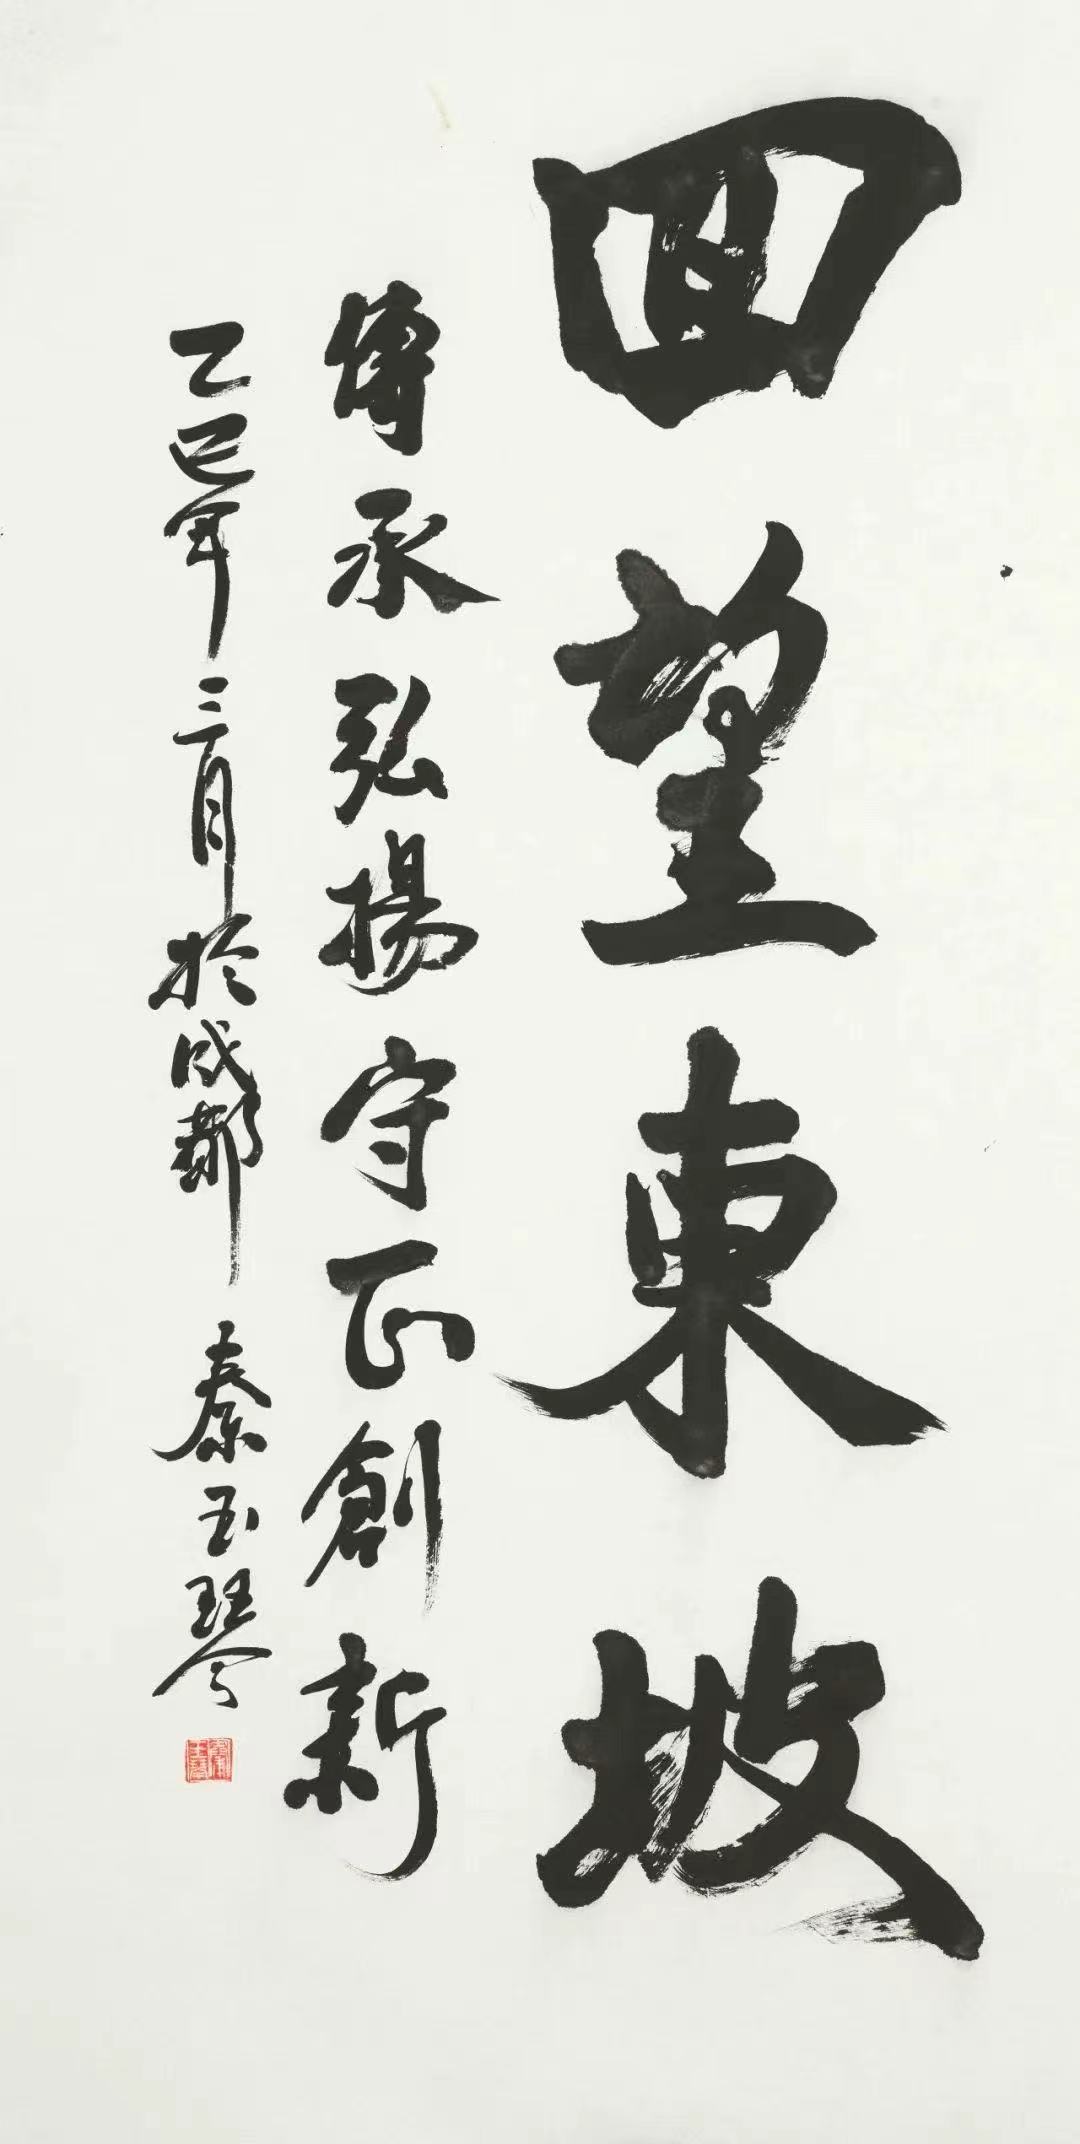 回望東坡
傳承弘揚守正創新
乙巳年三月於成都 秦玉琴